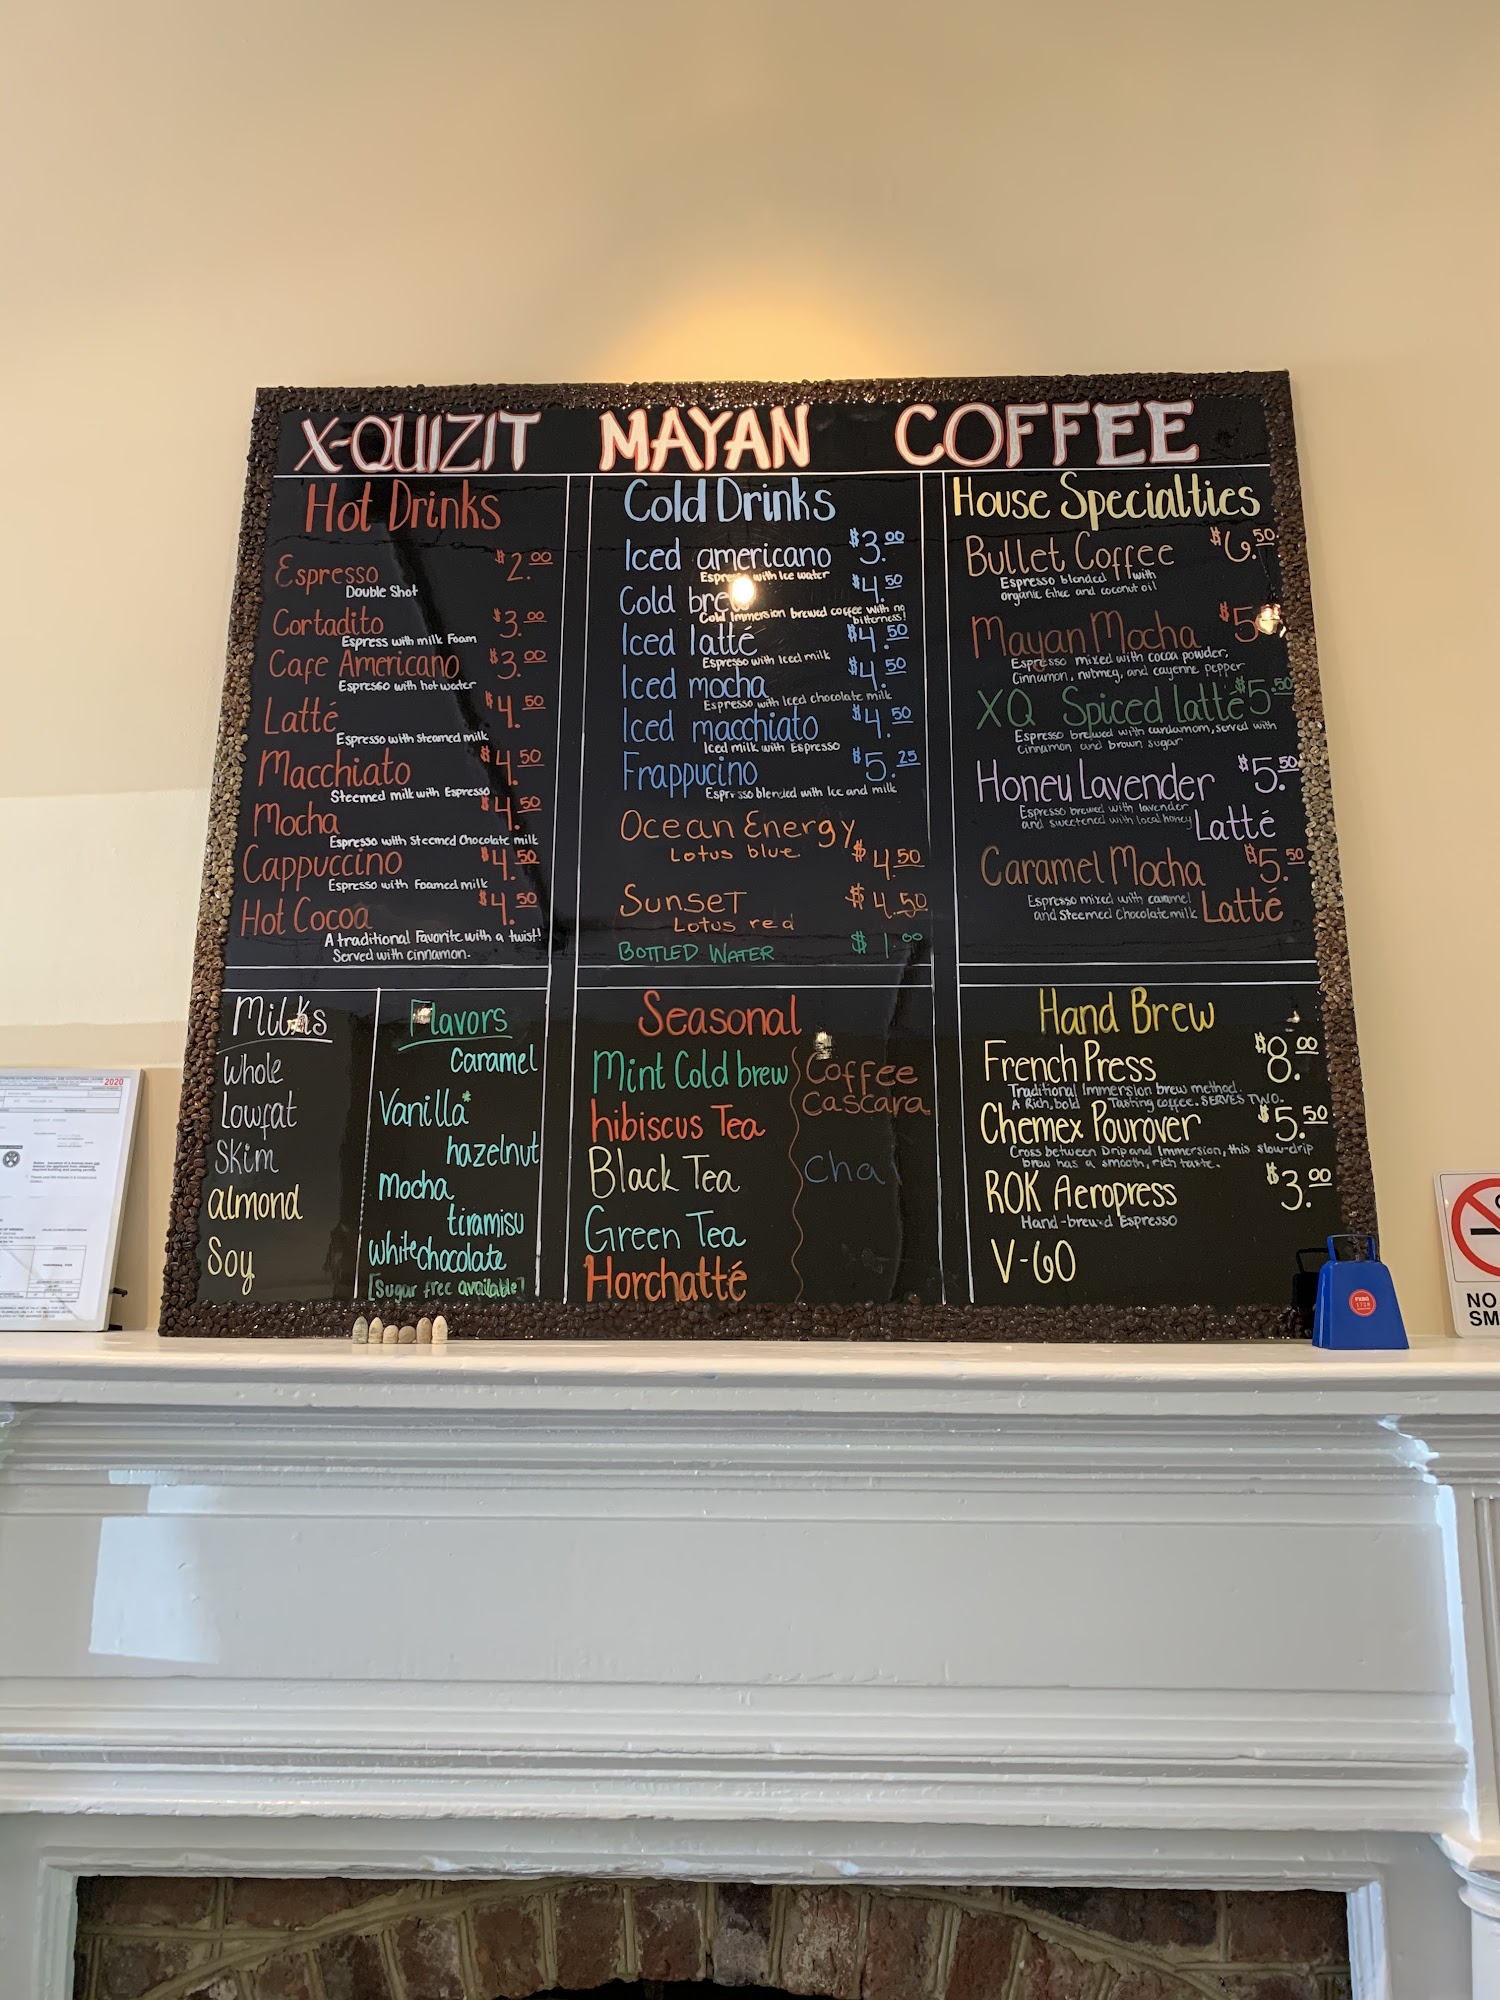 X-QUIZIT MAYAN COFFEE
Hot Drinks
Espresso $2.00
Double Shot
Cortadito $3.00
Espress with milk Foam
Cafe Americano $3.00
Espresso with hot water
Latté $4.50
Espresso with Steamed milk
Macchiato $4.50
Steemed milk with Espresso
Mocha $4.50
Espresso with Steemed Chocolate milk
Cappuccino $4.50
Espresso with Foamed milk
Hot Cocoa $4.50
A traditional Favorite with a twist!
Served with cinnamon.
Cold Drinks
Iced americano $3.00
Espresso with Ice water
Cold brew $4.50
Cold Immersion brewed coffee with no
bitterness!
Iced latté $4.50
Espresso with Iced milk
Iced mocha $4.50
Espresso with Iced chocolate milk
Iced macchiato $4.50
Iced milk with Espresso
Frappucino $5.25
Espresso blended with Ice and milk
Ocean Energy
Lotus blue $4.50
Sunset $4.50
Lotus red
BOTTLED WATER $1.00
House Specialties
Bullet Coffee $6.50
Espresso blended with
organic Ghee and coconut oil
Mayan Mocha $5
Espresso mixed with cocoa powder,
Cinnamon, nutmeg, and cayenne pepper
XQ Spiced latté $5.50
Espresso brewed with cardamom, served with
cinnamon and brown sugar
Honey Lavender $5.50
Espresso brewed with lavender
and sweetened with local honey Latté
Caramel Mocha $5.50
Espresso mixed with caramel
and Steemed Chocolate milk Latté
Milks
Whole
Lowfat
Skim
almond
Soy
Flavors
Caramel
Vanilla*
hazelnut
mocha
tiramisu
white chocolate
[Sugar free available]
Seasonal
Mint Cold brew
hibiscus Tea
Black Tea
Green Tea
Horchatté
Coffee
Cascara
Chai
Hand Brew
French Press $8.00
Traditional Immersion brew method.
A Rich, bold Tasting coffee. SERVES TWO.
Chemex Pourover $5.50
Cross between Drip and Immersion, this slow-drip
brew has a smooth, rich taste.
ROK Aeropress $3.00
Hand-brewed Espresso
V-60
2020
FXBG
1728
NO
SM